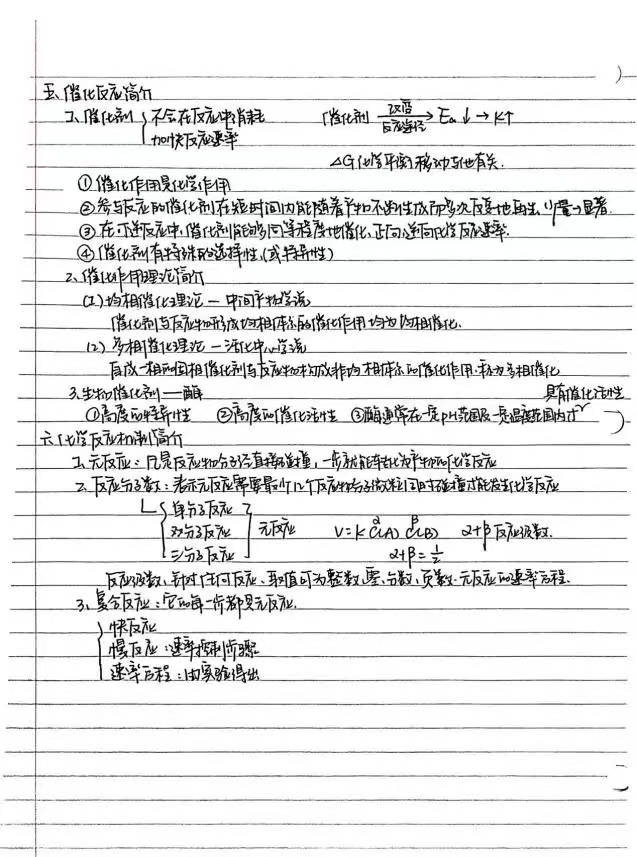 五、催化反应简介
1、催化剂 { 不会在反应中消耗 催化剂 改变反应途径→ Ea↓→K↑
加快反应速率
△G化学平衡移动与他有关.
①催化作用是化学作用
②参与反应的催化剂在短时间内能随着产物不断生成而多次反复地再生, 少量→显著.
③在可逆反应中,催化剂能够同等程度地催化正向、逆向化学反应速率.
④催化剂有特殊的选择性(或特异性)
2、催化作用理论简介
(1)均相催化理论—中间产物学说
催化剂与反应物形成均相体系的催化作用均为均相催化.
(2)多相催化理论—活化中心学说
自成一相的固相催化剂与反应物构成非均相体系的催化作用,称为多相催化
3.生物催化剂——酶 具有催化活性
①高度的特异性 ②高度的催化活性 ③酶通常在一定pH范围及一定温度范围内才
六、化学反应机制简介
1、元反应：凡是反应物分子经直接碰撞，一步就能转化为产物的化学反应
2、反应分子数：表示元反应需要最少几个反应物分子(微粒)同时碰撞才能发生化学反应
单分子反应
双分子反应 元反应 V=k cα(A) cβ(B) α+β反应级数.
三分子反应 α+β=1/2
反应级数,针对任何反应、取值可为整数,零,分数,负数.元反应的速率方程.
3、复合反应：它的每一步都是元反应.
快反应
慢反应：速率控制步骤
速率方程：由实验得出